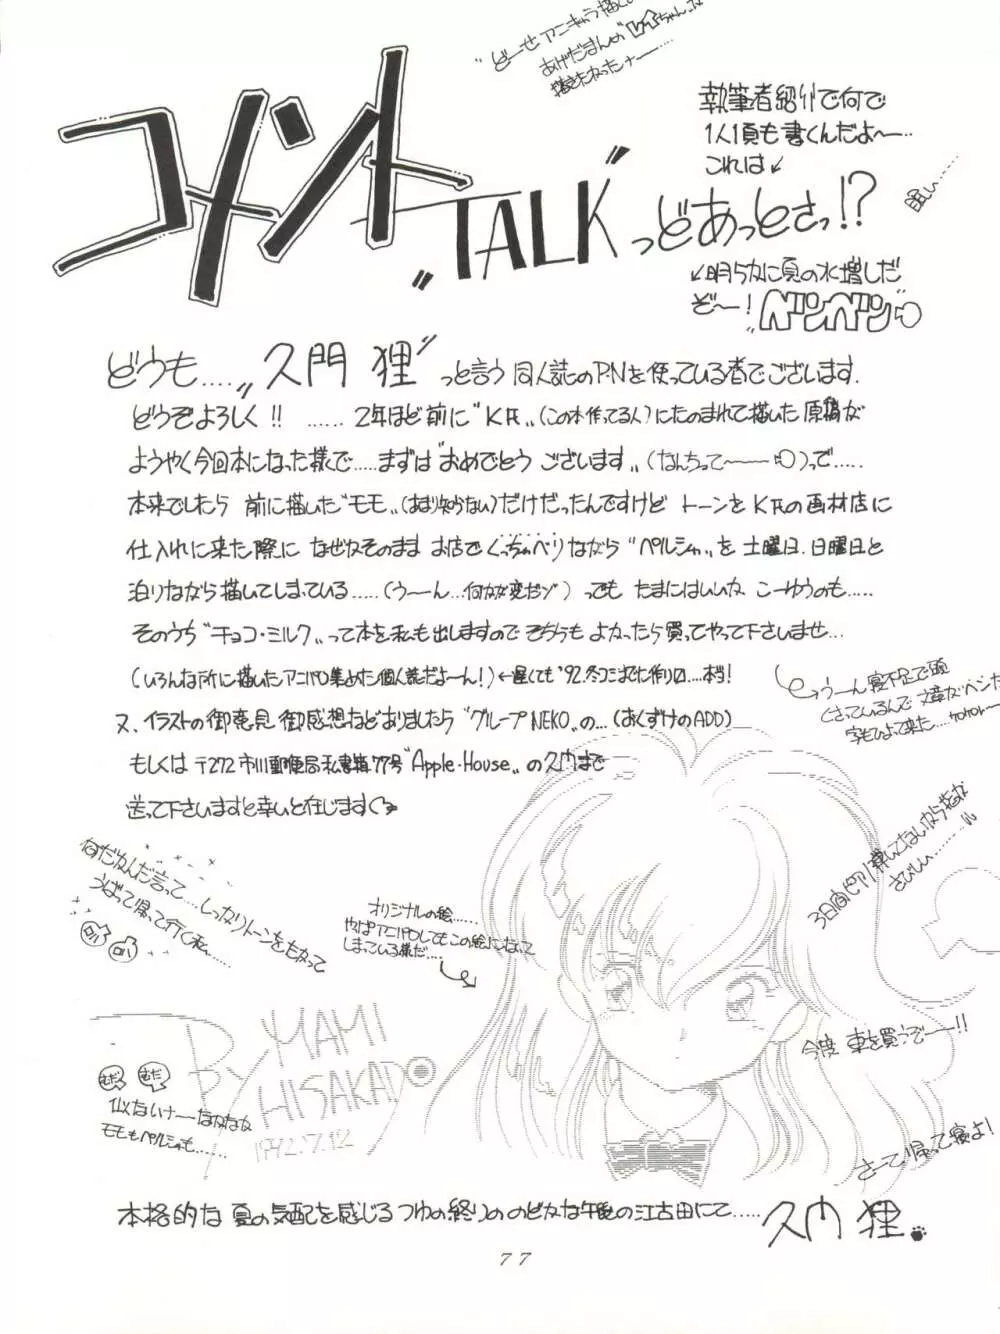 "どーせアニキャラ描く
あげだまんの
コメント
"TALK"
っどあっとさっ!?
執筆者紹介で何で
1人1頁も書くんだよ〜…
これは↙
眠い……
↙明らかに頁の水増しだ
ぞ〜！
"ベンベン
どうも…."久門 狸"っと言う同人誌のP.Nを使っている者でございます.
どうぞよろしく!! …… 2年ほど前に"K氏"(この本作ってる人)にたのまれて描いた原稿が
ようやく今回本になった様で…..まずは"おめでとう ございます"(なんちって〜〜〜)って…..
本来でしたら 前に描いた"モモ"(あまり知らない)だけだったんですけど トーンをK氏の画材店に
仕入れに来た際に なぜかそのまま お店でくっちゃべりながら "ペルシャ"を 土曜日.日曜日と
泊りながら描いてしまっている…..(うーん…何かが変だゾ)っでも たまにはいいな こーゆうのも…..
そのうち"チョコ・ミルク"って本を私も出しますので そちらも よかったら買ってやって下さいませ…
(いろんな所に描いたアニパロ集めた個人誌だよーん!)←遅くても'92.冬コミまでに作りマス….本当!
又、イラストの御意見 御感想などありましたら"グループNEKO"の…(おくずけのADD)
もしくは 〒272 市川郵便局私書箱77号"Apple・House"の久門まで
送って下さいますと幸いと在じます
う〜ん 寝不足で頭
くさっているんで 文章がヘンだ
字もひよって来た….
何だかんだ言って…しっかりトーンをもらって
うばって帰って行く私……
オリジナルの絵……
やっぱアニパロしてもこの絵になって
しまっている様だ….
3日間ピアノ弾いてないから指が
さびしい………
今度 車を買うぞーー!!
さーて 帰って寝よ!
BY MAMI
HISAKADO
1992.7.12
むだ むだ
似ないナーなかなか
モモもペルシャも……
本格的な 夏の気配を感じる つゆの終りの のどかな午後の江古田にて…..
久門 狸.
77